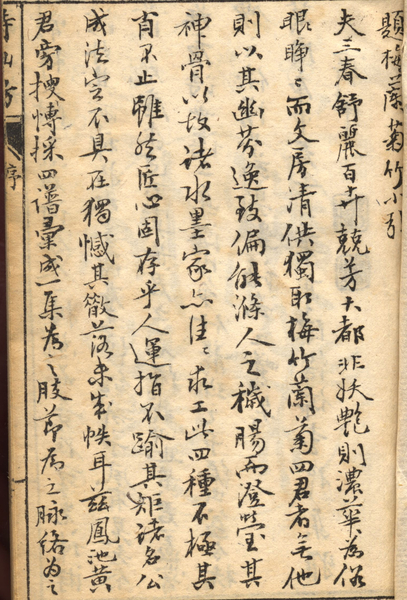 題梅蘭菊竹小引
夫三春舒麗百卉競芳大都非妖艷則濃華為俗
眼睜〻而文房清供獨取梅竹蘭菊四君者無他
則以其幽芬逸致偏能滌人之穢腸而澄瑩其
神骨以故諸水墨家亦往〻求工此四種不極其
肖不止雖然匠心固存乎人運指不踰其矩諸名公
成法寧不具在獨憾其散落未成帙耳茲鳳池黃
君旁搜博採四譜彙成一集為之肢節為之脉絡為之
序